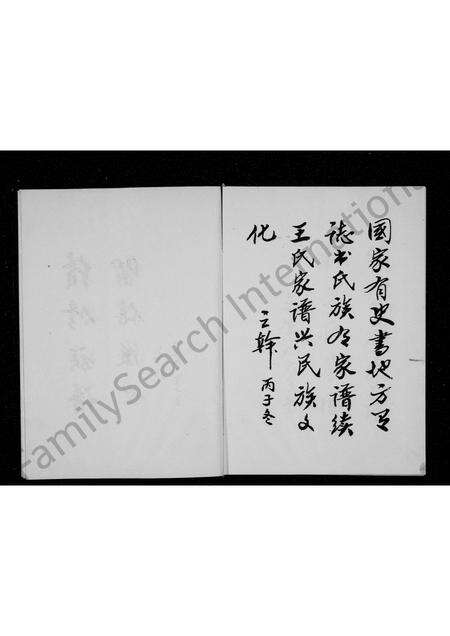 国家有史書地方有
誌书氏族有家谱续
王氏家谱兴民族文
化
云幹 丙子冬
FamilySearch International